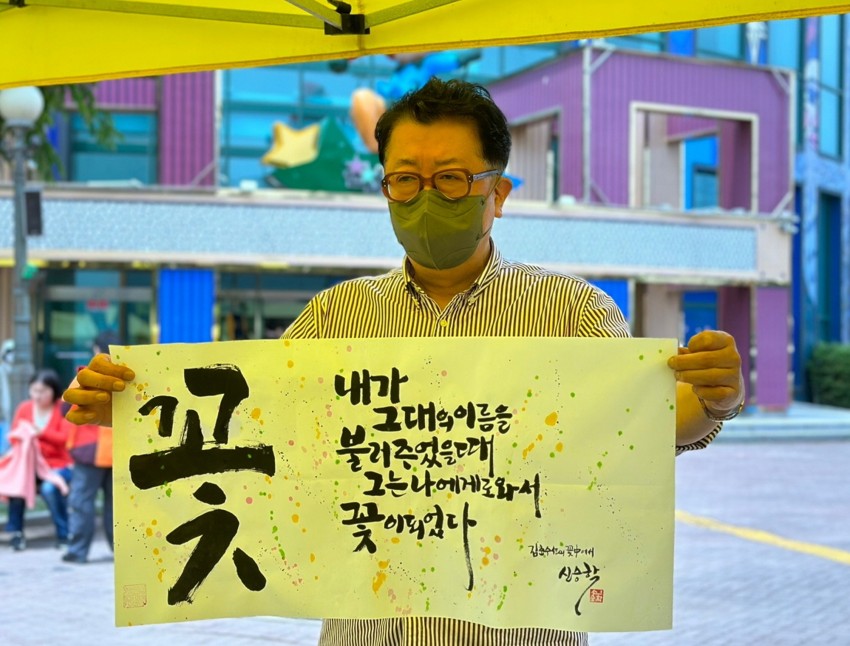 꽃
내가
그대의 이름을
불러주었을 때
그는 나에게로 와서
꽃이 되었다
김춘수님의 꽃 中에서